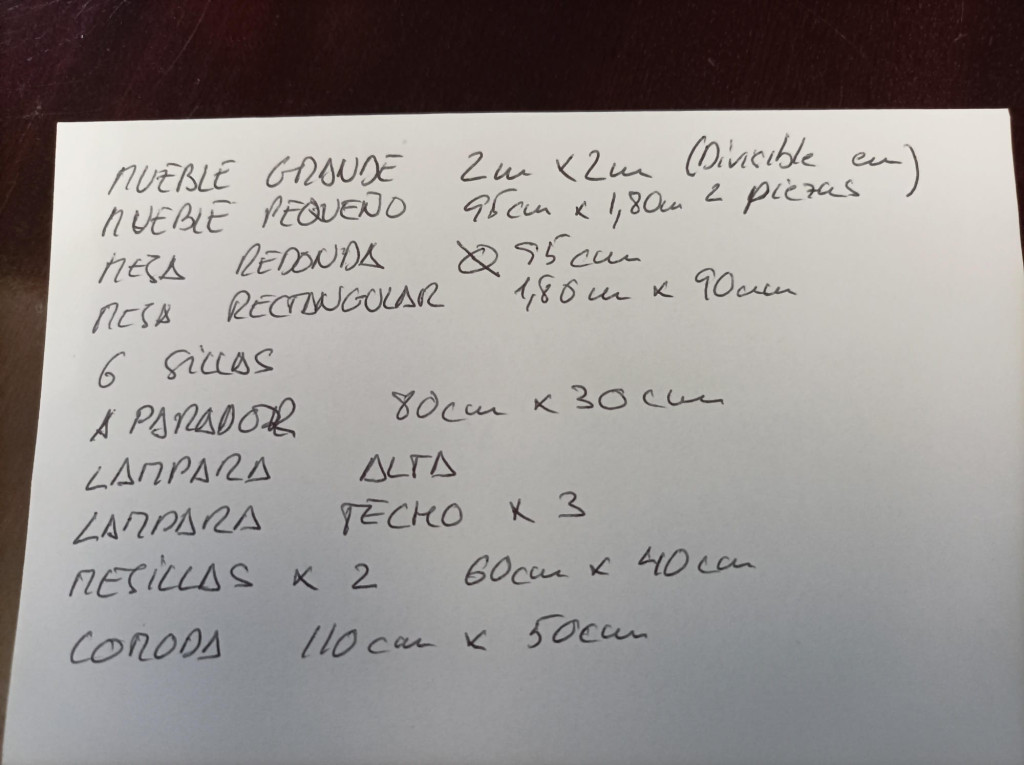 MUEBLE GRANDE 2m x 2m (Divisible en
MUEBLE PEQUEÑO 95cm x 1,80m 2 piezas)
MESA REDONDA Ø 95cm
MESA RECTANGULAR 1,80m x 90cm
6 SILLAS
APARADOR 80cm x 30cm
LAMPARA ALTA
LAMPARA TECHO x 3
MESILLAS x 2 60cm x 40cm
COMODA 110cm x 50cm